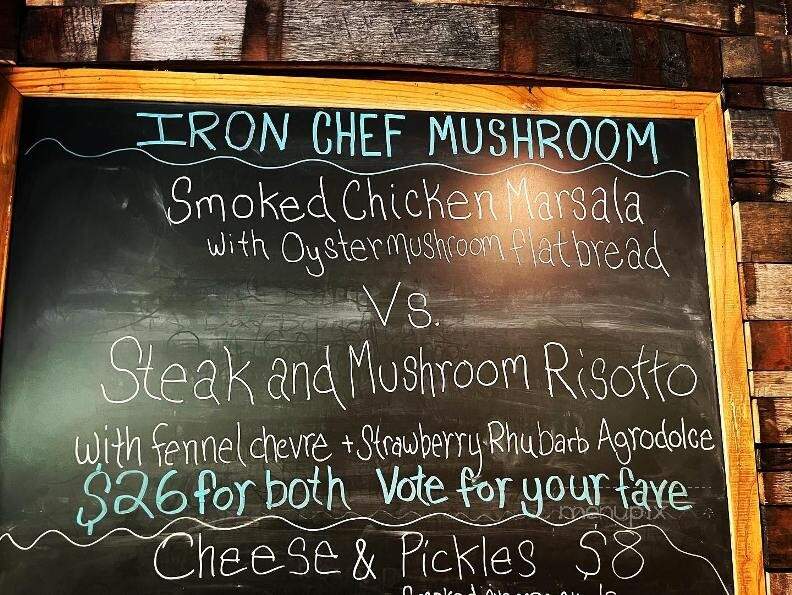 IRON CHEF MUSHROOM
Smoked Chicken Marsala
with Oyster mushroom flatbread
Vs.
Steak and Mushroom Risotto
with fennel chevre + Strawberry Rhubarb Agrodolce
$26 for both Vote for your fave
menupix
Cheese & Pickles $8
Smoked